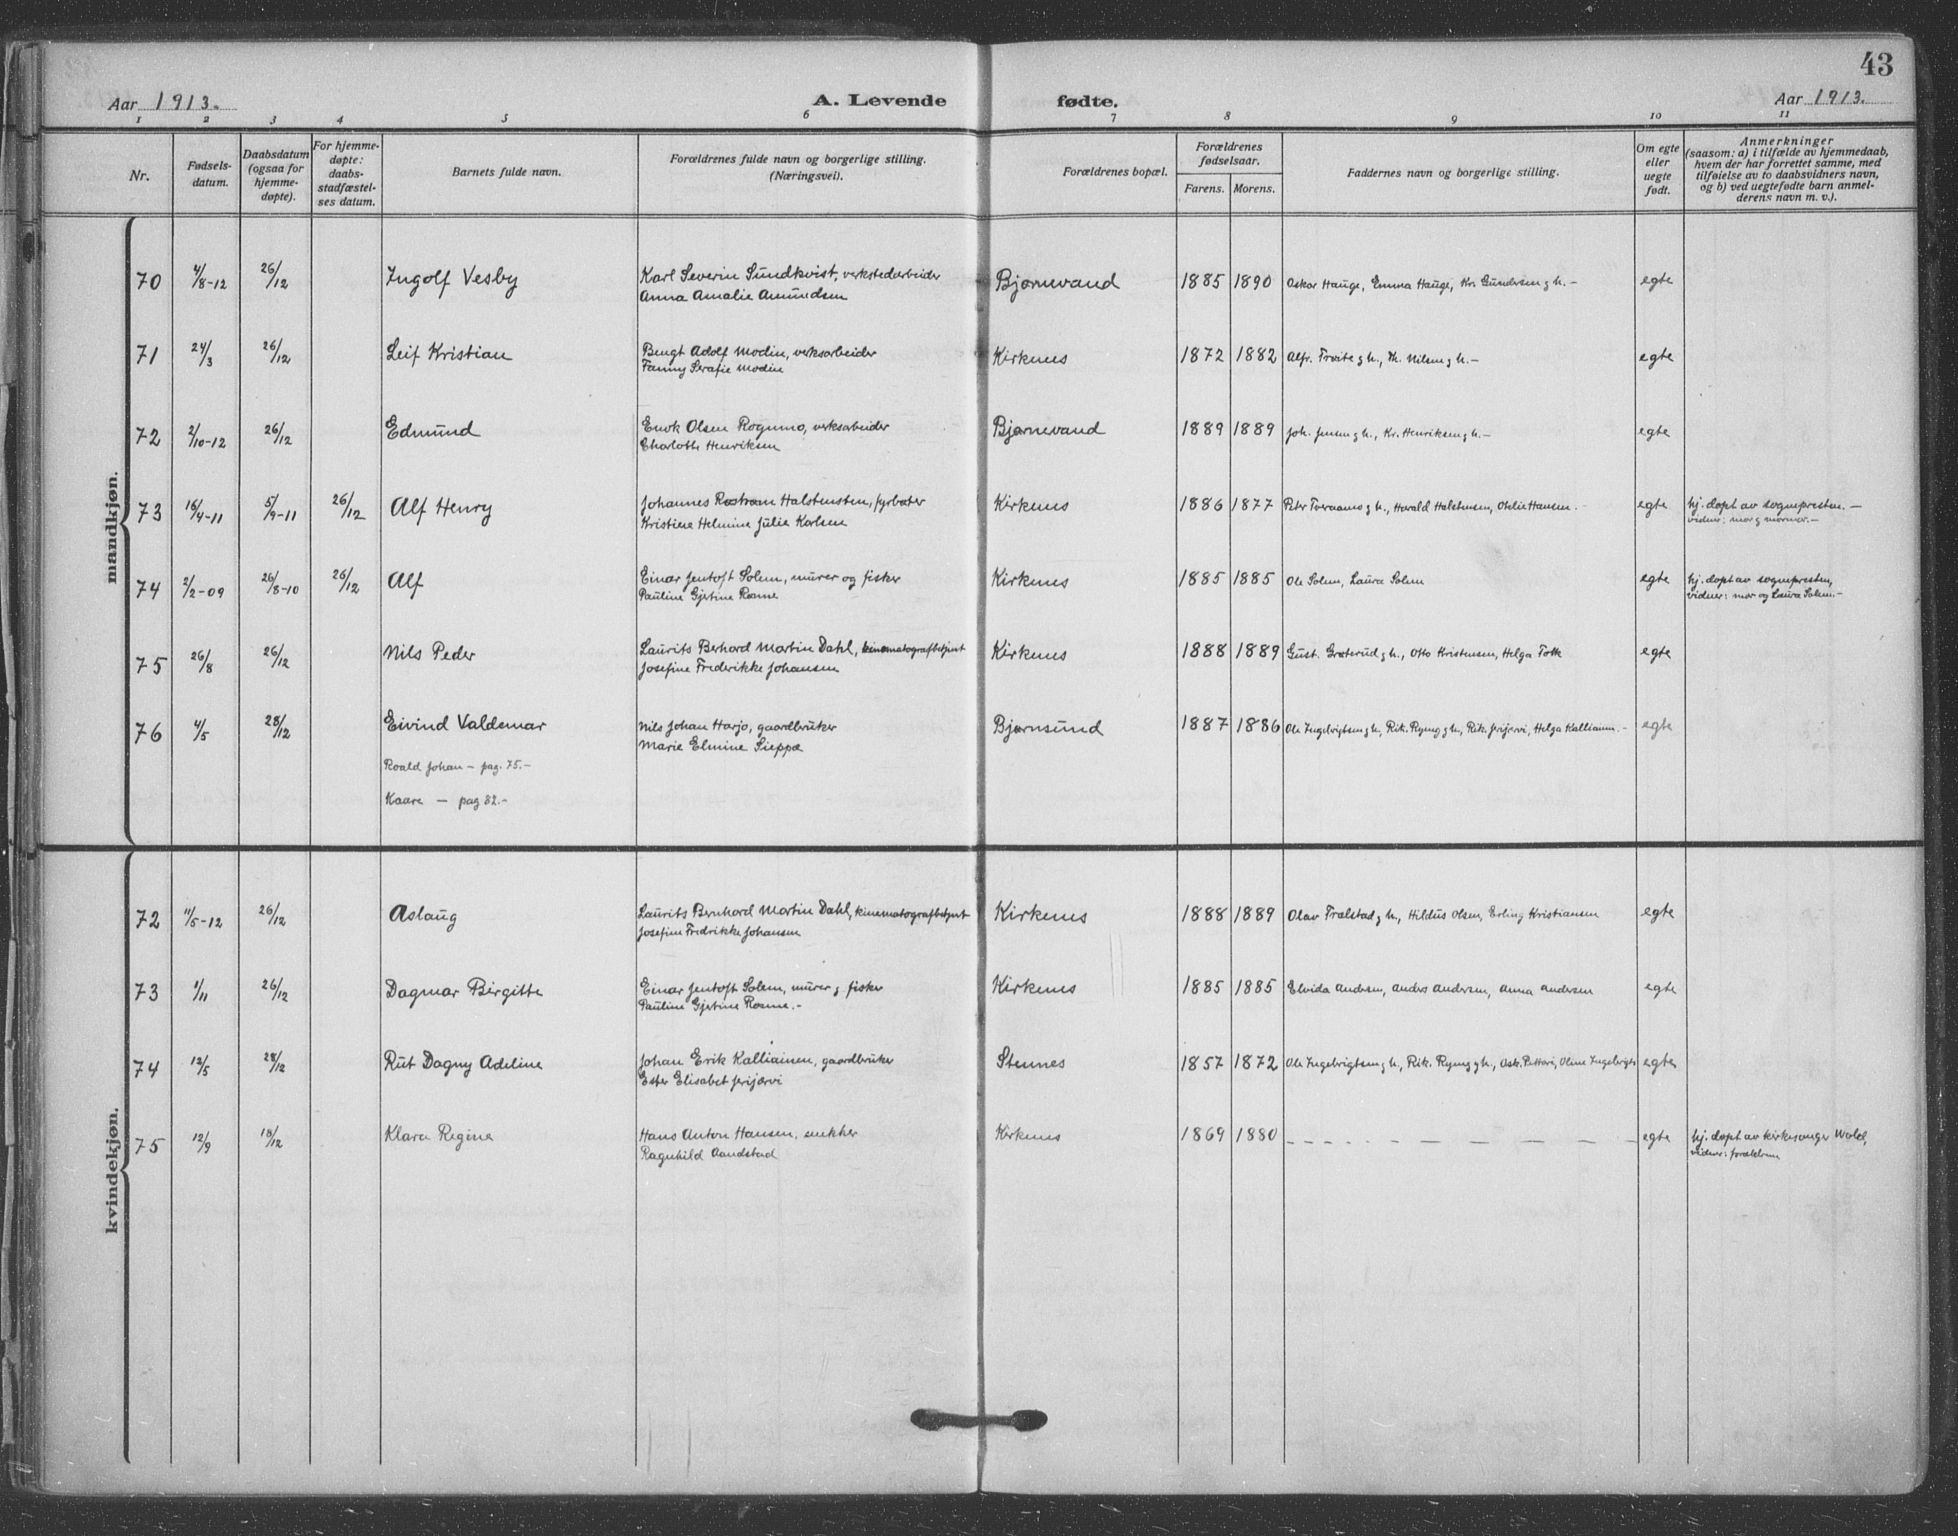 43
Aar 1913. A. Levende fødte. Aar 1913.
1 2 3 4 5 6 7 8 9 10 11
Nr. Fødsels-datum. Daabsdatum (ogsaa for hjemme-døpte). For hjemme-døpte: daabs-stadfæstel-ses datum. Barnets fulde navn. Forældrenes fulde navn og borgerlige stilling. (Næringsvei). Forældrenes bopæl. Forældrenes fødselsaar. Farens. Morens. Faddernes navn og borgerlige stilling. Om egte eller uegte født. Anmerkninger (saasom: a) i tilfælde av hjemmedaab, hvem der har forrettet samme, med tilføielse av to daabsvidners navn, og b) ved uegtefødte barn anmel-derens navn m. v.).
mandkjøn.
70 4/8-12 26/12 Ingolf Vesby Karl Severin Sundkvist, verkstedarbeider Bjørnevand 1885 1890 Oskar Hauge, Emma Hauge, Kr. Gundersen g h.- egte
Anna Amalie Amundsen
71 24/3 26/12 Leif Kristian Bengt Adolf Modin, verksarbeider Kirkenes 1872 1882 Alfr. Trøite g h., Th. Nilsen g h.- egte
Fanny Serafie Modin
72 2/10-12 26/12 Edmund Enok Olsen Rognmo, verksarbeider Bjørnevand 1889 1889 Joh. Jensen g h., Kr. Henriksen g h.- egte
Charlotte Henriksen
73 16/4-11 5/9-11 26/12 Alf Henry Johannes Halstensten, fyrbøter Kirkenes 1886 1877 Peter Tveraamo g h., Harald Halstensen, Othilie Hansen.- egte hj. døpt av sognepresten.-
Kristine Helmine Julie Karlsen vidner: mor g mormor.-
74 2/2-09 26/8-10 26/12 Alf Einar Jentoft Solem, murer og fisker Kirkenes 1885 1885 Ole Solem, Laura Solem egte hj. døpt av sognepresten,
Pauline Gjertine Rønne vidner: mor og Laura Solem.-
75 26/8 26/12 Nils Peder Laurits Berhard Martin Dahl, kinematografbetjent Kirkenes 1888 1889 Gust. Grøterud g h., Otto Kristensen, Helga Toth egte
Josefine Frederikke Johansen
76 4/5 28/12 Eivind Valdemar Nils Johan Harjo, gaardbruker Bjørnsund 1887 1886 Ole Ingebrigtsen g h., Rik. Ryeng g h., Rik. Jerijervi, Helga Kalliainen.- egte
Marie Elmine Sieppæ
Roald Johan - pag. 75.-
Kaare - pag 82.-
kvindekjøn.
72 11/5-12 26/12 Aslaug Laurits Bernhard Martin Dahl, kinematografbetjent Kirkenes 1888 1889 Olav Trælstad g h., Hildus Olsen, Erling Kristiansen egte
Josefine Fredrikke Johansen
73 1/11 26/12 Dagmar Birgitte Einar Jentoft Solem, murer g fisker Kirkenes 1885 1885 Elvida Andersen, Anders Andersen, Anna Andersen egte
Pauline Gjertine Rønne.-
74 12/5 28/12 Rut Dagny Adeline Johan Erik Kalliainen, gaardbruker Stennes 1857 1872 Ole Ingebrigtsen g h., Rik. Ryeng g h., Osk. Pettari, Oline Ingebrigts egte
Ester Elisabet Jerijærvi
75 12/9 18/12 Klara Regine Hans Anton Hansen, snekker Kirkenes 1869 1880 - - - - - - egte hj. døpt av kirkesanger Wold,
Ragnhild Aandstad vidner: forældrene